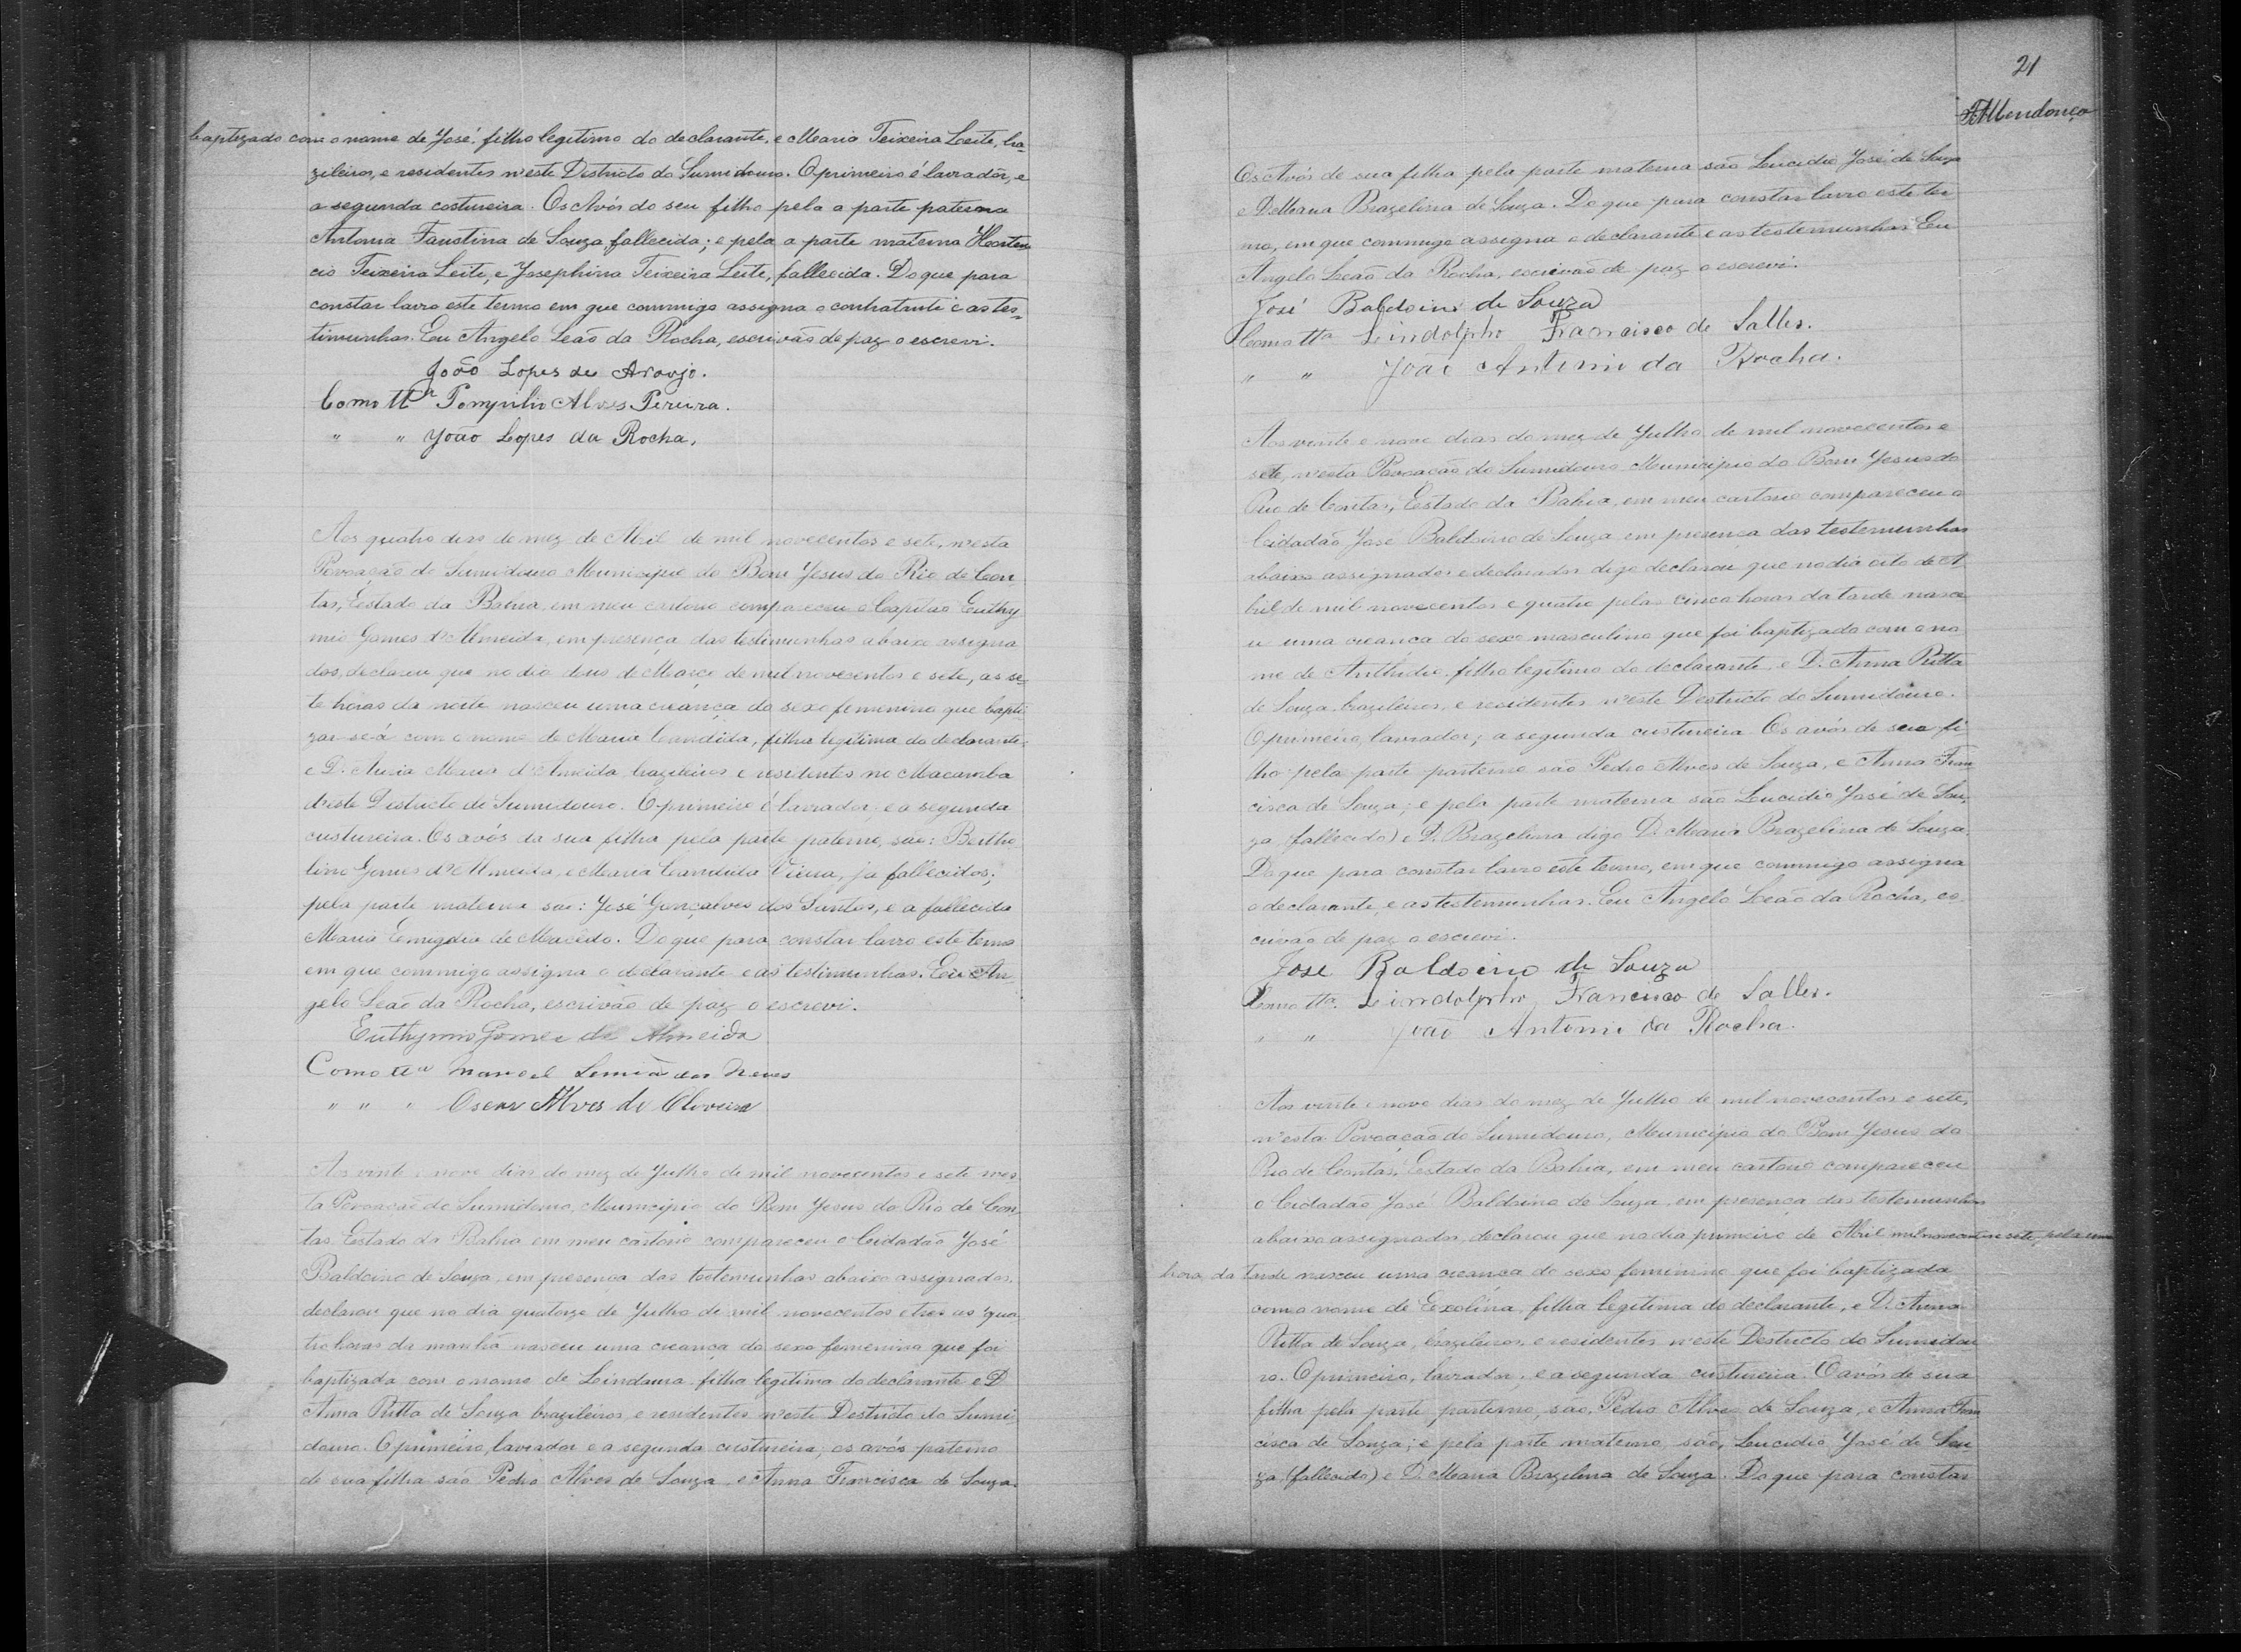 baptizado com o nome de José, filho legitimo do declarante, e Maria Teixeira Leite, bra-
zileiros, e residentes n'este Districto do Sumidouro. O primeiro é lavrador, e
a segunda costureira. Os Avós do seu filho pela a parte paterna
Antonia Faustina de Souza, fallecida; e pela a parte materna Horten
cio Teixeira Leite, e Josephina Teixeira Leite, fallecida. Do que para
constar lavro este termo em que commigo assigna o contratante e as tes-
timunhas. Eu Angelo Leão da Rocha, escrivão de paz o escrevi.
João Lopes de Araujo.
Como tta Pompilio Alves Pereira.
" " João Lopes da Rocha.
Aos quatro dias do mez de Abril de mil novecentos e sete, n'esta
Povoação do Sumidouro Municipio do Bom Jesus do Rio de Con
tas, Estado da Bahia em meu cartorio compareceu o Capitão Euthy
mio Gomes d'Almeida, em presença das testimunhas abaixo assigna
dos, declarou que no dia dous de Março de mil novecentos e sete, as se-
te horas da noite nasceu uma creança do sexo femenino que bapti
zar-se-á com o nome de Maria Candida, filha legitima do declarante,
e D. Maria d'Almeida, brazileiros e residentes no Macamba
d'este Districto do Sumidouro. O primeiro é lavrador, e a segunda
custureira. Os avós da sua filha pela parte paterno, são: Bertho
lino Gomes d'Almeida, e Maria Candida Vieira, já fallecidos;
pela parte materna são: José Gonçalves dos Santos, e a fallecida
Maria Emygdia de Macêdo. Do que para constar lavro este termo
em que commigo assigna o declarante e as testimunhas. Eu An-
gelo Leão da Rocha, escrivão de paz o escrevi.
Euthymio Gomes de Almeida
Como tta Manoel das Neves
" " " Oscar Alves de Oliveira
Aos vinte e nove dias do mez de Julho de mil novecentos e sete nes
ta Povoação do Sumidouro, Municipio do Bom Jesus do Rio de Con
tas, Estado da Bahia em meu cartorio compareceu o Cidadão José
Baldoino de Souza, em presença das testemunhas abaixo assignados,
declarou que no dia quatorze de Julho de mil novecentos e tres as qua
tro horas da manhã nasceu uma creança do sexo femenino que foi
baptizada com o nome de Lindaura, filha legitima do declarante e D.
Anna Ritta de Souza brazileiros, e residentes n'este Destricto do Sumi
douro. O primeiro, lavrador e a segunda custureira; os avós paterno
de sua filha são Pedro Alves de Souza, e Anna Francisca de Souza.
21
Mendonça
Os Avós de sua filha pela parte materna são Lucidio José de Souza
e D. Maria Brazelina de Souza. Do que para constar lavro este ter
mo, em que commigo assigna o declarante e as testemunhas. Eu
Angelo Leão da Rocha, escrivão de paz o escrevi.
José Baldoino de Souza
Como tta Lindolpho Francisco de Salles.
" " João Antonio da Rocha.
Aos vinte e nove dias do mez de Julho de mil novecentos e
sete, n'esta Povoação do Sumidouro Municipio do Bom Jesus do
Rio de Contas, Estado da Bahia, em meu cartorio compareceu o
Cidadão José Baldoino de Souza em presença das testemunhas
abaixo assignados e declarados digo declarou que no dia oito de A
bril de mil novecentos e quatro pelas cinco horas da tarde nasce
u uma creança do sexo masculino que foi baptizado com o no
me de filho legitimo do declarante, e D. Anna Ritta
de Souza, brazileiros, e residentes n'este Destricto do Sumidouro.
O primeiro, lavrador; a segunda custureira. Os avós de seu fi
lho pela parte parterno são Pedro Alves de Souza, e Anna Fran
cisca de Souza; e pela parte materna são Lucidio José de Sou-
za, (fallecido) e D. Brazelina digo D. Maria Brazelina de Souza.
Do que para constar lavro este termo, em que commigo assigna
o declarante, e as testemunhas. Eu Angelo Leão da Rocha, es
crivão de paz o escrevi.
José Baldoino de Souza
Como tta. Lindolpho Francisco de Salles.
" " João Antonio da Rocha.
Aos vinte e nove dias do mez de Julho de mil novecentos e sete,
n'esta Povoação do Sumidouro, Municipio do Bom Jesus do
Rio de Contas, Estado da Bahia, em meu cartorio compareceu
o Cidadão José Baldoino de Souza, em presença das testemunhas
abaixo assignados, declarou que no dia primeiro de Abril mil novecentos e sete, pela uma
hora da tarde nasceu uma creança do sexo feminino que foi baptizada
com o nome de Exolina, filha legitima do declarante, e D. Anna
Ritta de Souza, brazileiros, e residentes n'este Destricto do Sumidou
ro. O primeiro, lavrador, e a segunda custureira. O avós de sua
filha pela parte parterno, são, Pedro Alves de Souza, e Anna Fran
cisca de Souza; e pela parte materno são, Lucidio José de Sou
za, (fallecido) e D. Maria Brazelina de Souza. Do que para constar